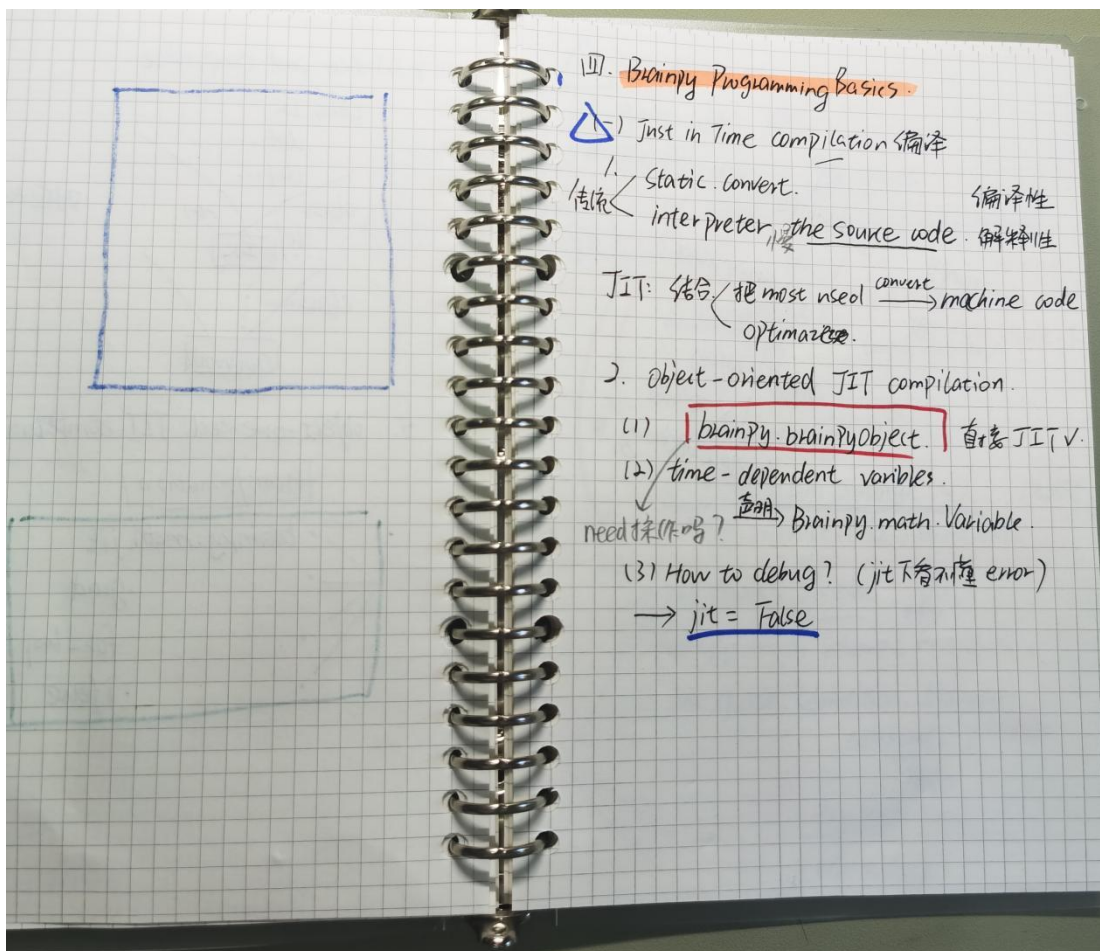 四. Brainpy Programming Basics.
(一) Just in Time compilation 编译
1.
传统 static. convert. 编译性
interpreter 慢 the source code. 解释性
JIT: 结合 把 most used convert → machine code
optimaze.
2. Object-oriented JIT compilation.
(1) brainpy.brainPyObject. 直接 JIT √.
(2) time-dependent varibles.
need 操作吗? 声明 → Brainpy.math.Variable.
(3) How to debug? (jit 下看不懂 error)
→ jit = False